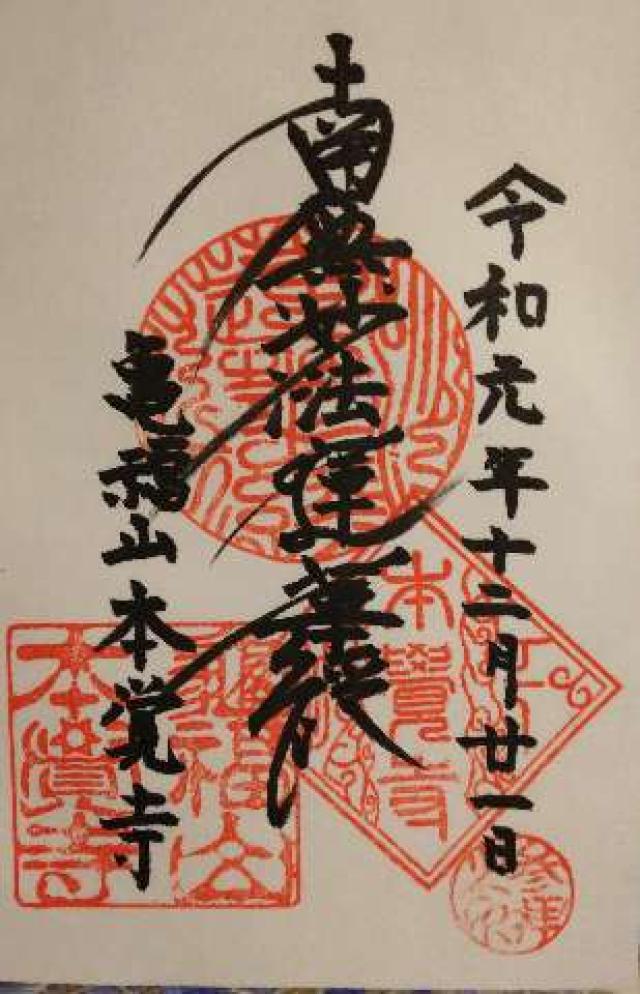 令和元年十二月廿一日
南無妙法蓮華経
亀福山本覚寺
本覺寺